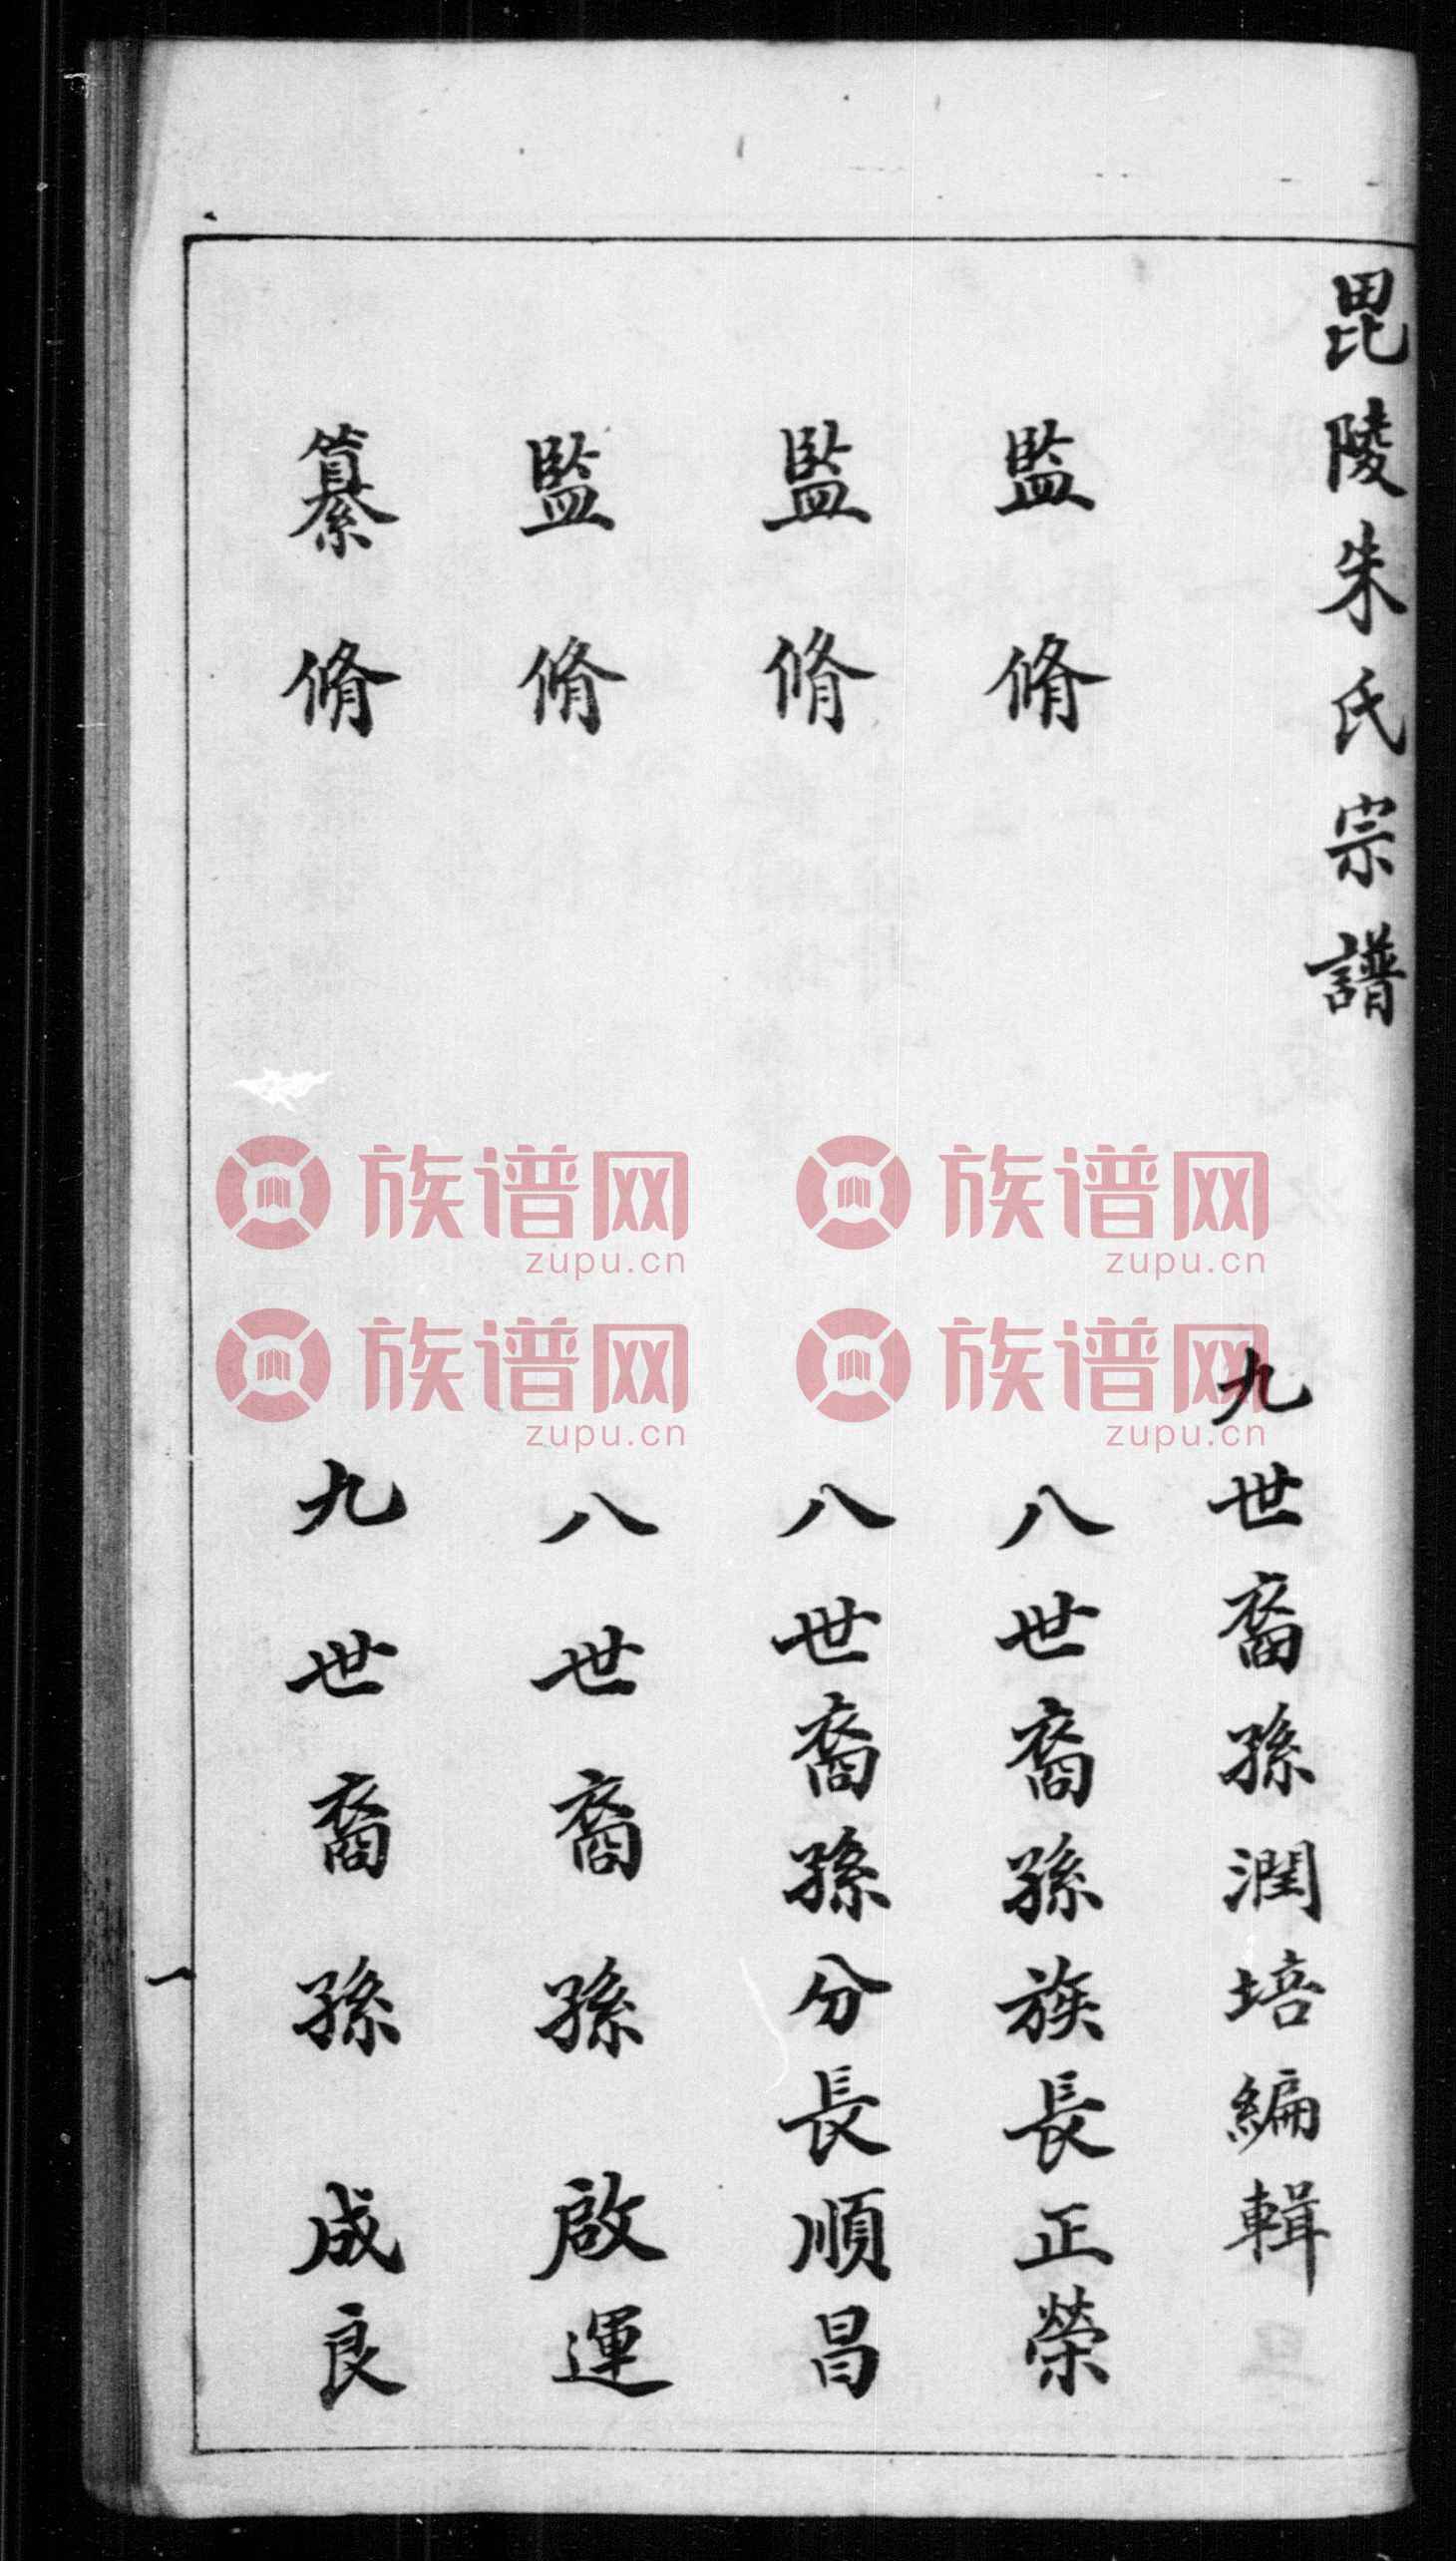 毘陵朱氏宗譜
九世裔孫潤培編輯
監脩 八世裔孫族長正榮
監脩 八世裔孫分長順昌
監脩 八世裔孫 啟運
纂脩 九世裔孫 成良
一
族谱网 zupu.cn
族谱网 zupu.cn
族谱网 zupu.cn
族谱网 zupu.cn